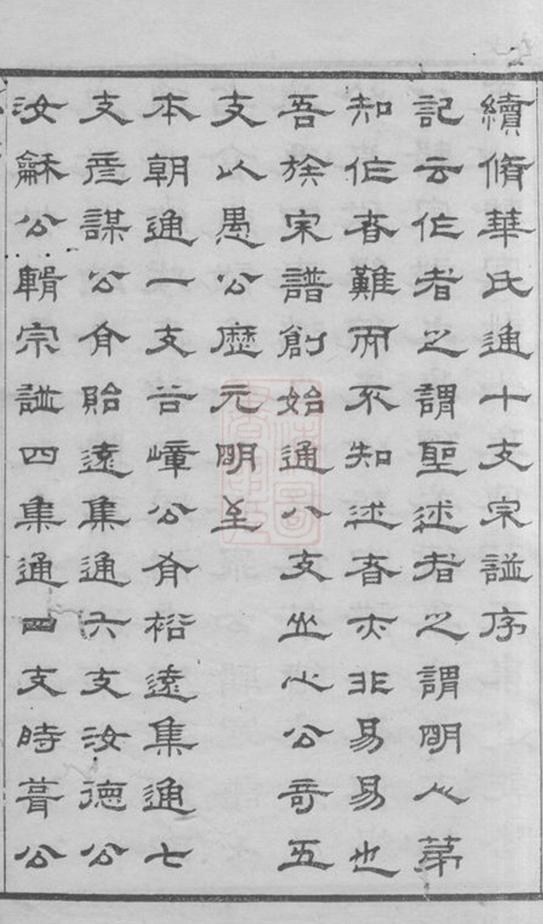 續脩華氏通十支宗譜序
記云作者之謂聖述者之謂明人苐
知作者難而不知述者亦非易易也
吾族宗譜創始通八支坐心公哥五
支以愚公歷元明至
本朝通一支谷嶂公有裕遠集通七
支彦謀公有貽遠集通六支汝德公
汝龢公輯宗譜四集通四支時葺公